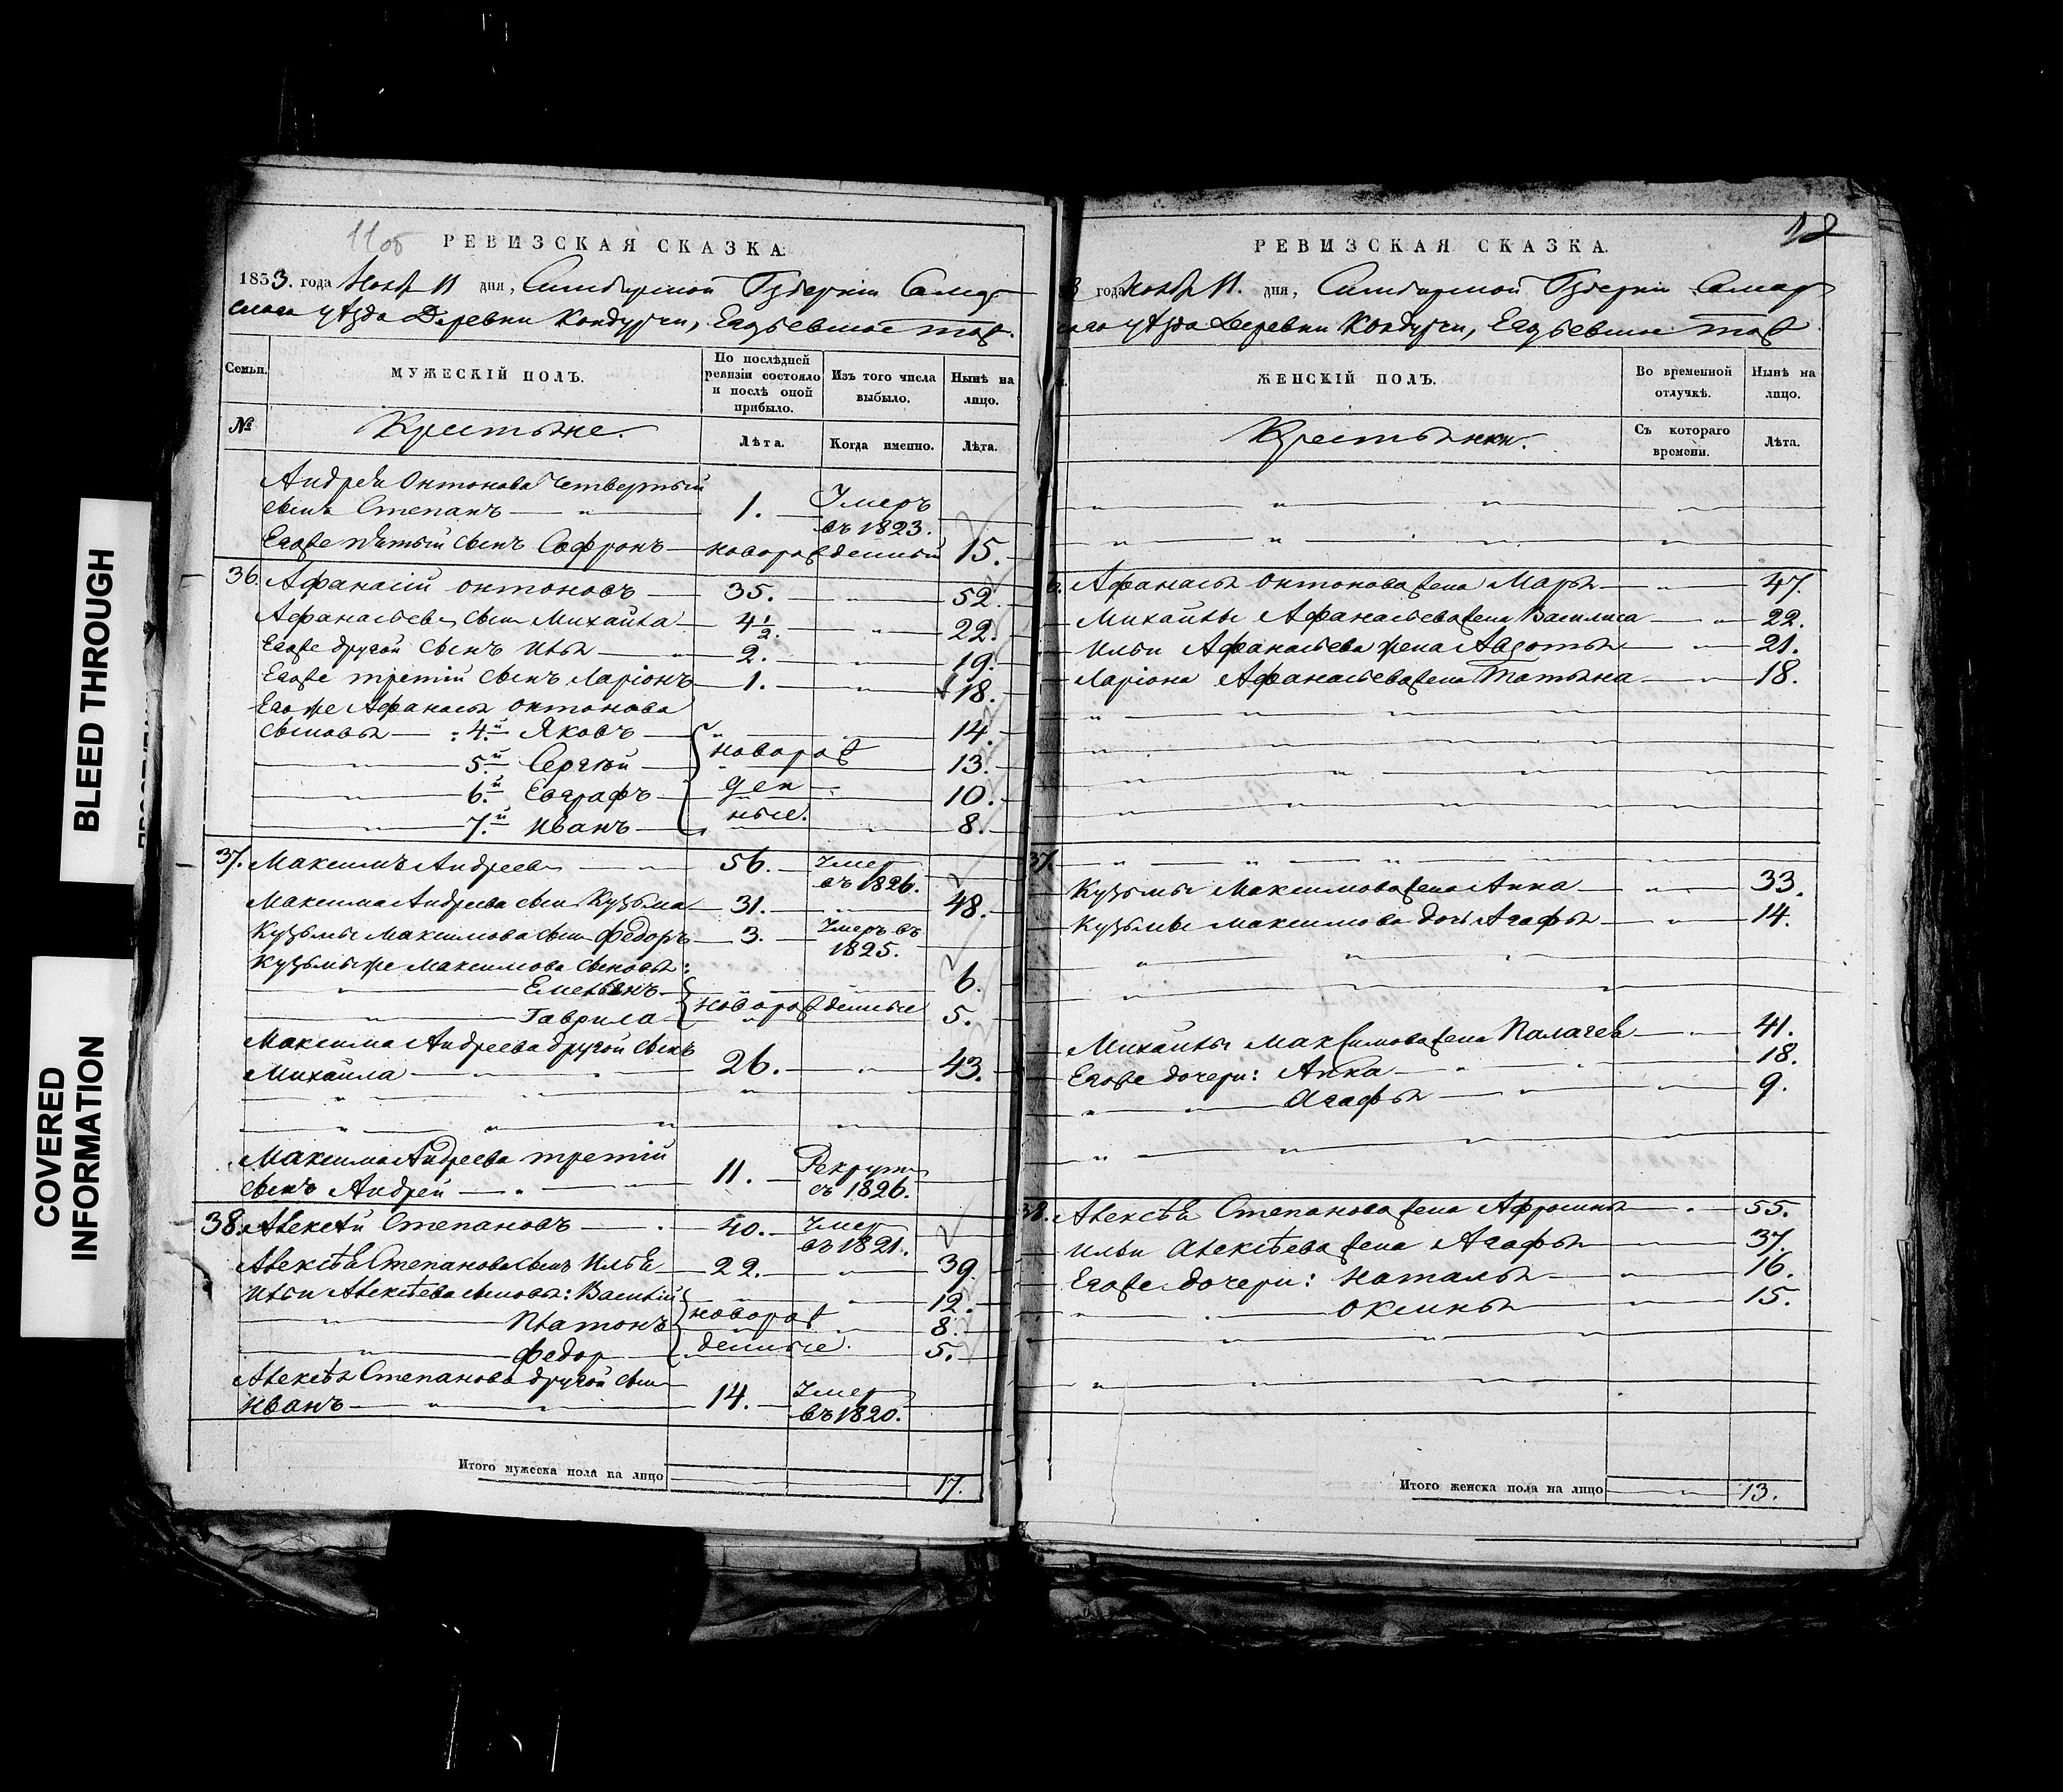 BLEED THROUGH
COVERED
INFORMATION
11об
РЕВИЗСКАЯ СКАЗКА.
1833. года Нояб 11 дня, Симбирской Губернiи Самар
скаго уѣзда Деревни Кондурчи,
Семьи.
МУЖЕСКІЙ ПОЛЪ.
По послѣдней ревизіи состояло и послѣ оной прибыло.
Изъ того числа выбыло.
Нынѣ на лицо.
№
Крестьяне.
Лѣта.
Когда именно.
Лѣта.
Андрея Онтонова четвертый
сынъ Степанъ — „ — 1. Умеръ въ 1823.
Егоже пятый сынъ Софронъ — новорожденный 15.
36. Афанасій Онтоновъ — 35. — „ — 52.
Афанасьевъ сынъ Михайла — 4 1/2. — „ — 22.
Егоже другой сынъ Илья — 2. — „ — 19.
Егоже третій сынъ Ларіонъ — 1. — „ — 18.
Егоже Афанасья Онтонова
сыновья — : 4.й Яковъ — новорож 14.
— „ — 5.й Сергѣй — 13.
— „ — 6.й Евграфъ — ден 10.
— „ — 7.й Иванъ — ные. 8.
37. Максимъ Андреевъ — 56. Умер въ 1826.
Максима Андреева сынъ Кузьма — 31. — „ — 48.
Кузьмы Максимова сынъ Федоръ — 3. Умеръ въ 1825.
Кузьмыже Максимова сыновья:
— „ — Емельянъ — 6.
— „ — Гаврила — новорожденные 5.
Максима Андреева другой сынъ
Михайла — „ — 26. — „ — 43.
Максима Андреева третій
сынъ Андрей — „ — 11. Рекрут въ 1826.
38. Алексѣй Степановъ — 40. Умер въ 1821.
Алексѣя Степанова сынъ Илья — 22. — „ — 39.
Ильи Алексѣева сыновья: Василій — 12.
— „ — Платонъ новорож 8.
— „ — Федор — денные. 5.
Алексѣя Степанова другой сынъ
Иванъ — „ — 14. Умер въ 1820.
Итого мужеска пола на лицо 17.
12
РЕВИЗСКАЯ СКАЗКА.
3 года Нояб 11. дня, Симбирской Губерніи Самар
скаго уѣзда Деревни Кондурчи,
ЖЕНСКІЙ ПОЛЪ.
Во временной отлучкѣ.
Нынѣ на лицо.
Крестьянки.
Съ котораго времени.
Лѣта.
6. Афанасья Онтонова жена Марья — „ — 47.
Михайлы Афанасьева жена Василиса — „ — 22.
Ильи Афанасьева жена Авдотья — „ — 21.
Ларіона Афанасьева жена Татьяна — „ — 18.
37.
Кузьмы Максимова жена Анна — „ — 33.
Кузьмы Максимова дочь Агафья — „ — 14.
Михайлы Максимова жена Палагея — „ — 41.
Егоже дочери: Анна — „ — 18.
— „ — Агафья — „ — 9.
38. Алексѣя Степанова жена Афросинья — „ — 55.
Ильи Алексѣева жена Агафья — „ — 37.
Егоже дочери: Наталья — „ — 16.
— „ — Оксинья — „ — 15.
Итого женска пола на лицо — „ — 13.